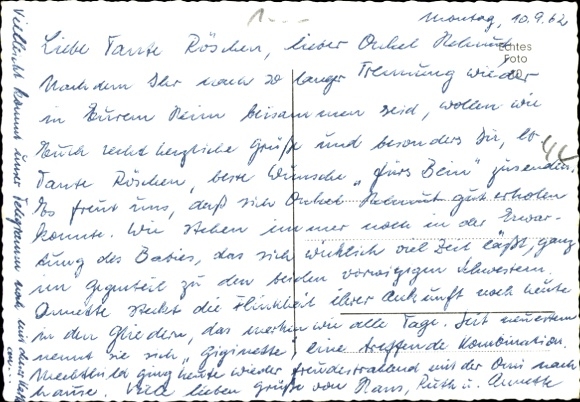 Montag, 10.9.62
Liebe Tante Röschen, lieber Onkel Helmut
Echtes
Foto
Nachdem Ihr nach so langer Trennung wieder
in Eurem Heim beisammen seid, wollen wir
Euch recht herzliche Grüße und besonders Dir, lb.
Tante Röschen, beste Wünsche "fürs Bein" zusenden.
Es freut uns, daß sich Onkel Helmut gut erholen
konnte. Wir stehen immer noch in der Erwar-
tung des Babies, das sich wirklich viel Zeit läßt, ganz
im Gegenteil zu den beiden vorwitzigen Schwestern.
Annette steckt die Flinkheit ihrer Ankunft noch heute
in den Gliedern, das merken wir alle Tage. Seit neuestem
nennt sie sich "Giginette", eine treffende Kombination.
Mechthild ging heute wieder freudestrahlend mit der Omi nach
Hause. Viele lieben Grüße von Hans, Ruth u. Annette
Vielleicht kommt unser Telegramm noch mit dieser Karte
an.